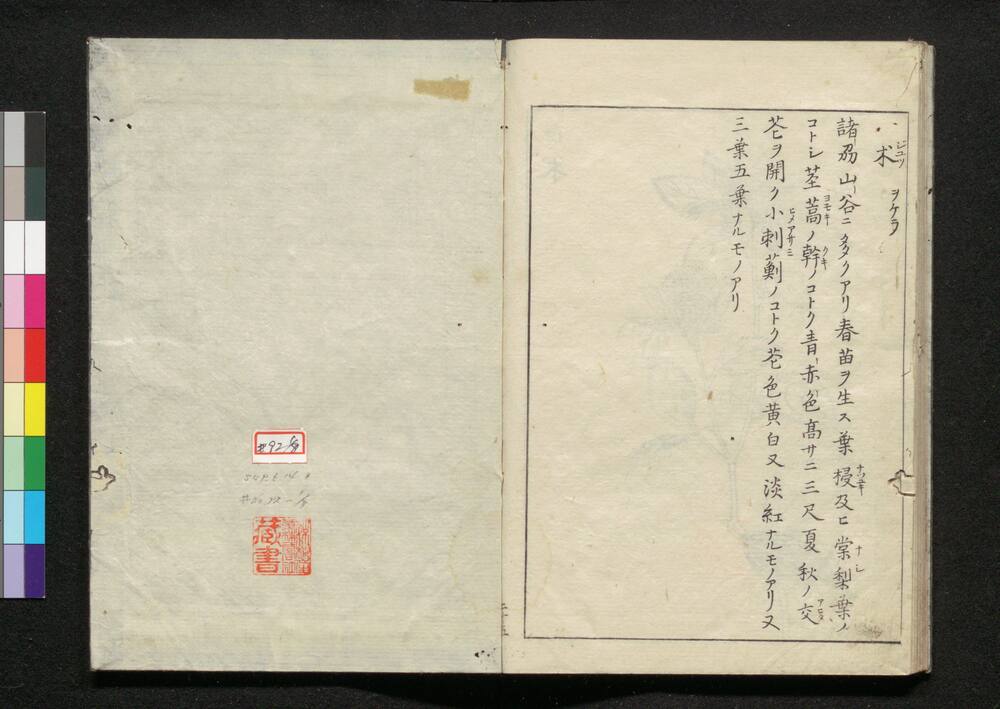 朮 ヲケラ
ジユツ
諸刕山谷ニ多クアリ春苗ヲ生ス葉㮗及ヒ棠梨葉ノ
ナシ
コトシ茎蒿ノ幹ノコトク青赤色高サ二三尺夏秋ノ交
ヨモキ
クキ
花ヲ開ク小刺薊ノコトク花色黄白又淡紅ナルモノアリ又
ヒメアサミ
三葉五葉ナルモノアリ
藏書